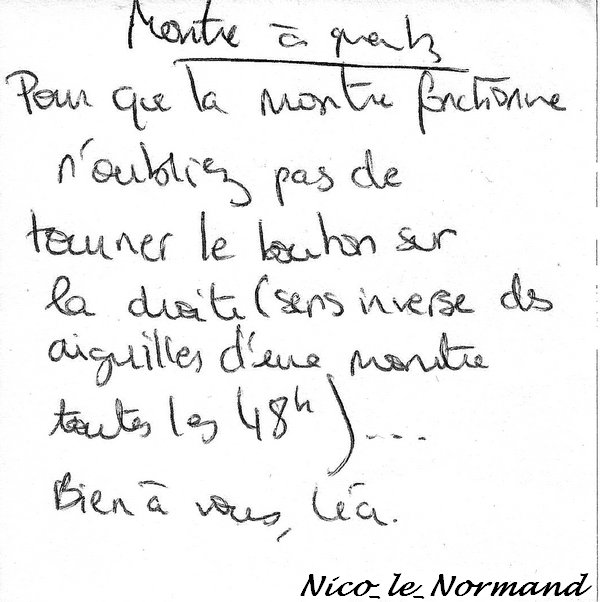 Montre à quartz
Pour que la montre fonctionne
n'oubliez pas de
tourner le bouton sur
la droite (sens inverse des
aiguilles d'une montre
toutes les 48h)....
Bien à vous, Léa.
Nico_le_Normand